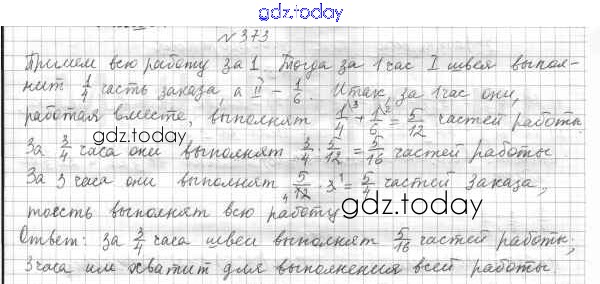 gdz.today
№ 373
Примем всю работу за 1. Тогда за 1 час I швея выпол-
нит 1/4 часть заказа, а II - 1/6. Итак за 1 час они,
работая вместе, выполнят 1/4 ³ + 1/6 ² = 5/12 частей работы.
gdz.today
За 3/4 часа они выполнят 3/4 · 5/12 = 5/16 частей работы
За 3 часа они выполнят 5/12 ₄ · 3 ¹ = 5/4 частей заказа,
тоесть выполнят всю работу
gdz.today
Ответ: за 3/4 часа швеи выполнят 5/16 частей работы;
3 часа им хватит для выполнения всей работы
gdz.today